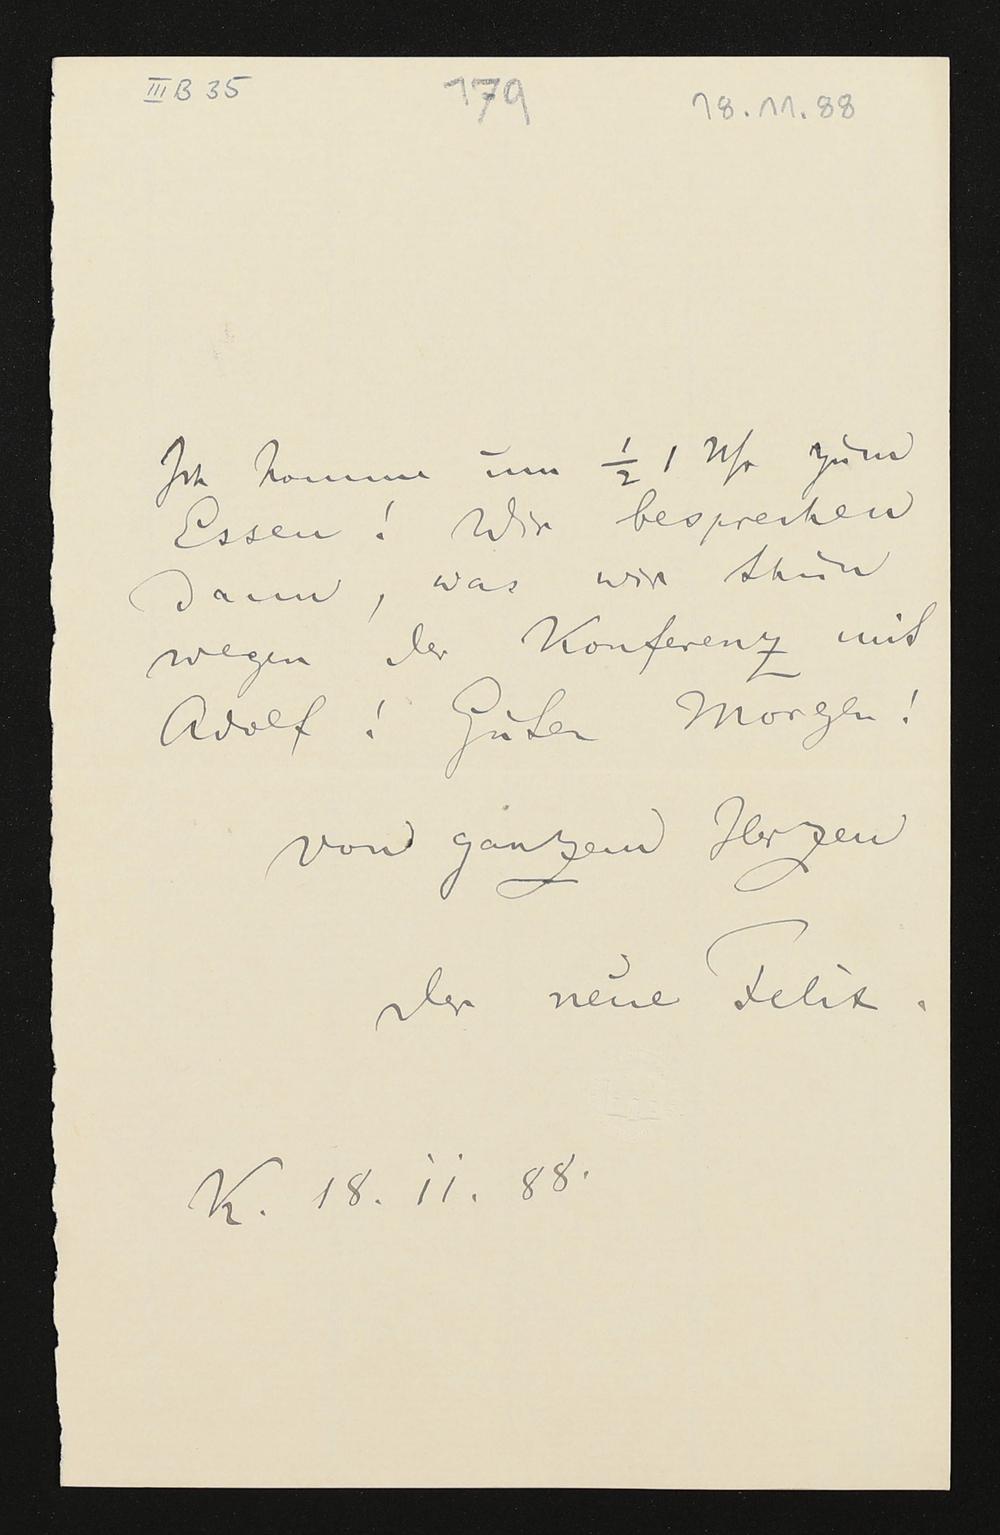 III B 35 179 18.11.88
Ich komme um ½ 1 Uhr zum
Essen! Wir besprechen
dann, was wir thun
wegen der Konferenz mit
Adolf! Guten Morgen!
von ganzem Herzen
der neue Felix.
K. 18. 11. 88.